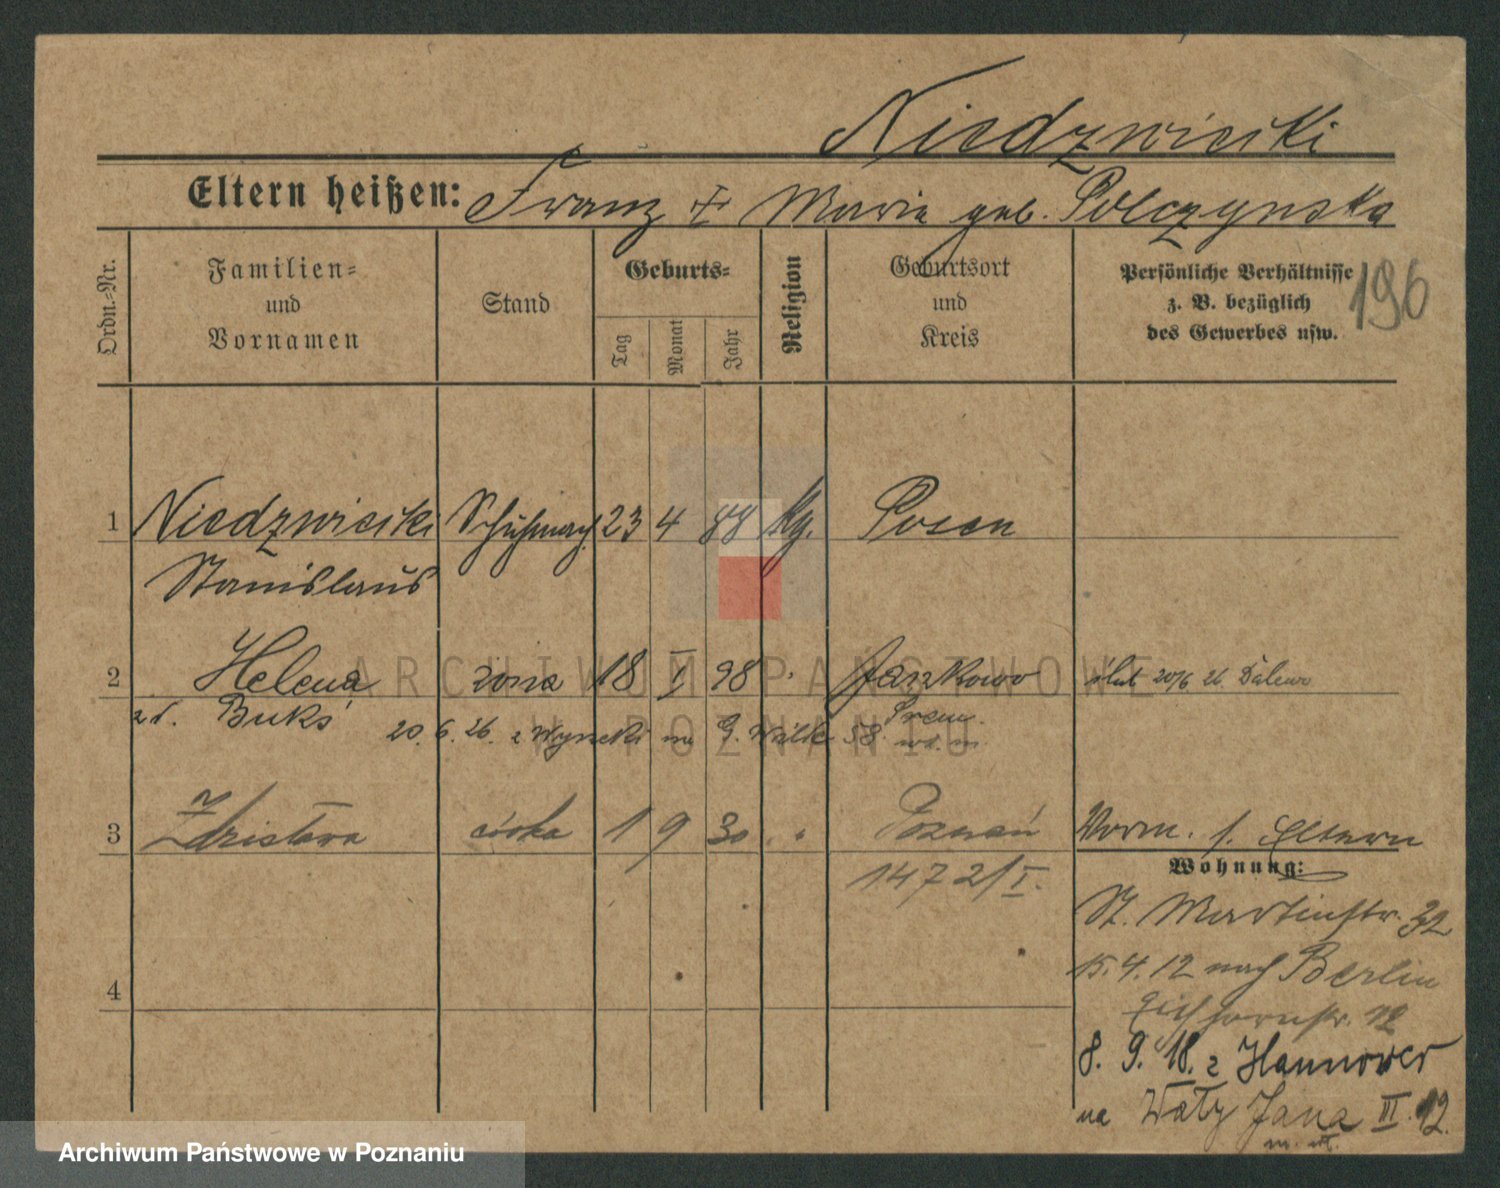 Niedzwiecki
Eltern heißen: Franz + Maria geb. Polczynska
Ordn.=Nr.
Familien=
und
Vornamen
Stand
Geburts=
Tag
Monat
Jahr
Religion
Geburtsort
und
Kreis
Persönliche Verhältnisse
z. B. bezüglich
des Gewerbes usw.
196
1 Niedzwiecki Schuhmach. 23 4 88 kg. Posen
Stanislaus
2 Helena żona 18 I 98 " Jankowo ślub 20/6 26. Dalewo
z d. Bukś Śrem.
20. 6. 26. z Wyneki na G. Wilda 58. wd. m.
3 Zdzisława córka 1 9 30 " Poznań Vorm. s. Eltern
1472/I.
4
Wohnung:
St. Martinstr. 32
15. 4. 12 nach Berlin
Eichhornstr. 12
8. 9. 18. z Hannover
na Wały Jana III. 12.
m. wł.
ARCHIWUM PAŃSTWOWE
W POZNANIU
Archiwum Państwowe w Poznaniu